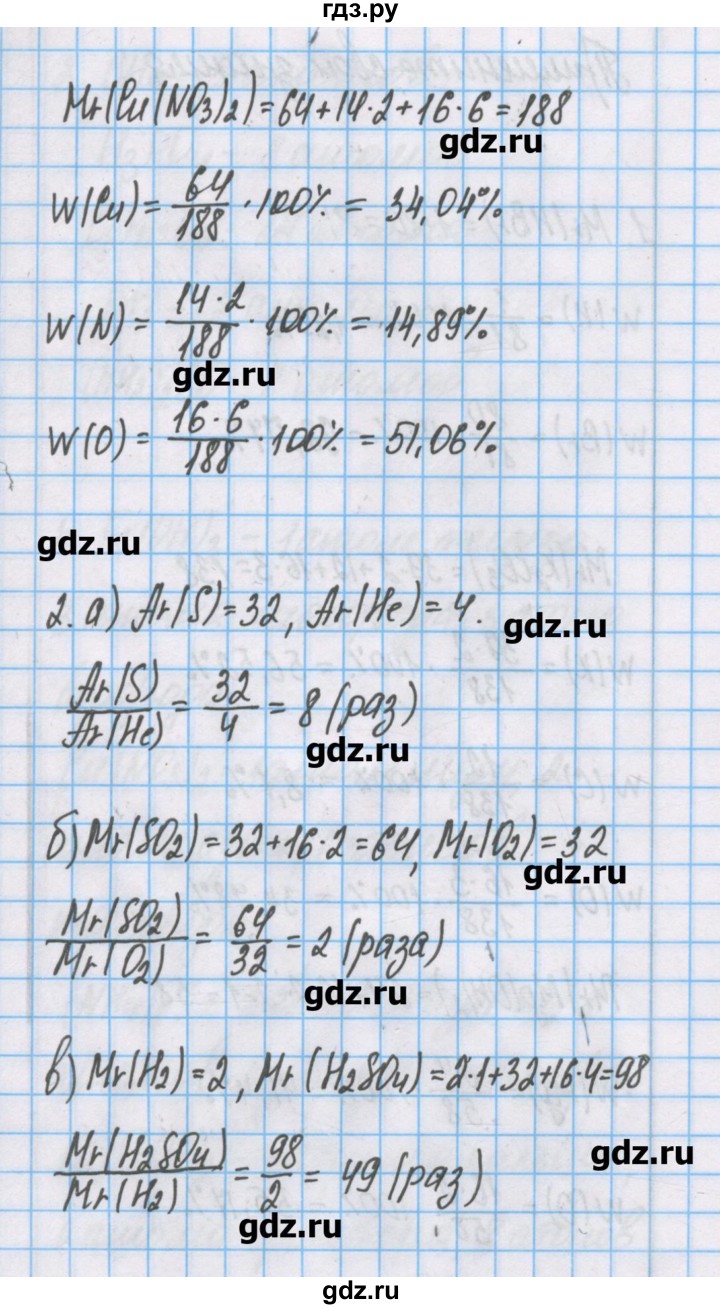 гдз.ру
Mr(Cu(NO3)2)=64+14·2+16·6=188
gdz.ru
W(Cu) = 64/188 · 100% = 34,04%
W(N) = 14·2/188 · 100% = 14,89%
gdz.ru
W(O) = 16·6/188 · 100% = 51,06%
gdz.ru
2. а) Ar(S)=32, Ar(He)=4.
gdz.ru
Ar(S)/Ar(He) = 32/4 = 8 (раз)
gdz.ru
б) Mr(SO2)=32+16·2=64, Mr(O2)=32
gdz.ru
Mr(SO2)/Mr(O2) = 64/32 = 2 (раза)
gdz.ru
в) Mr(H2)=2, Mr(H2SO4)=2·1+32+16·4=98
gdz.ru
Mr(H2SO4)/Mr(H2) = 98/2 = 49 (раз)
gdz.ru
gdz.ru